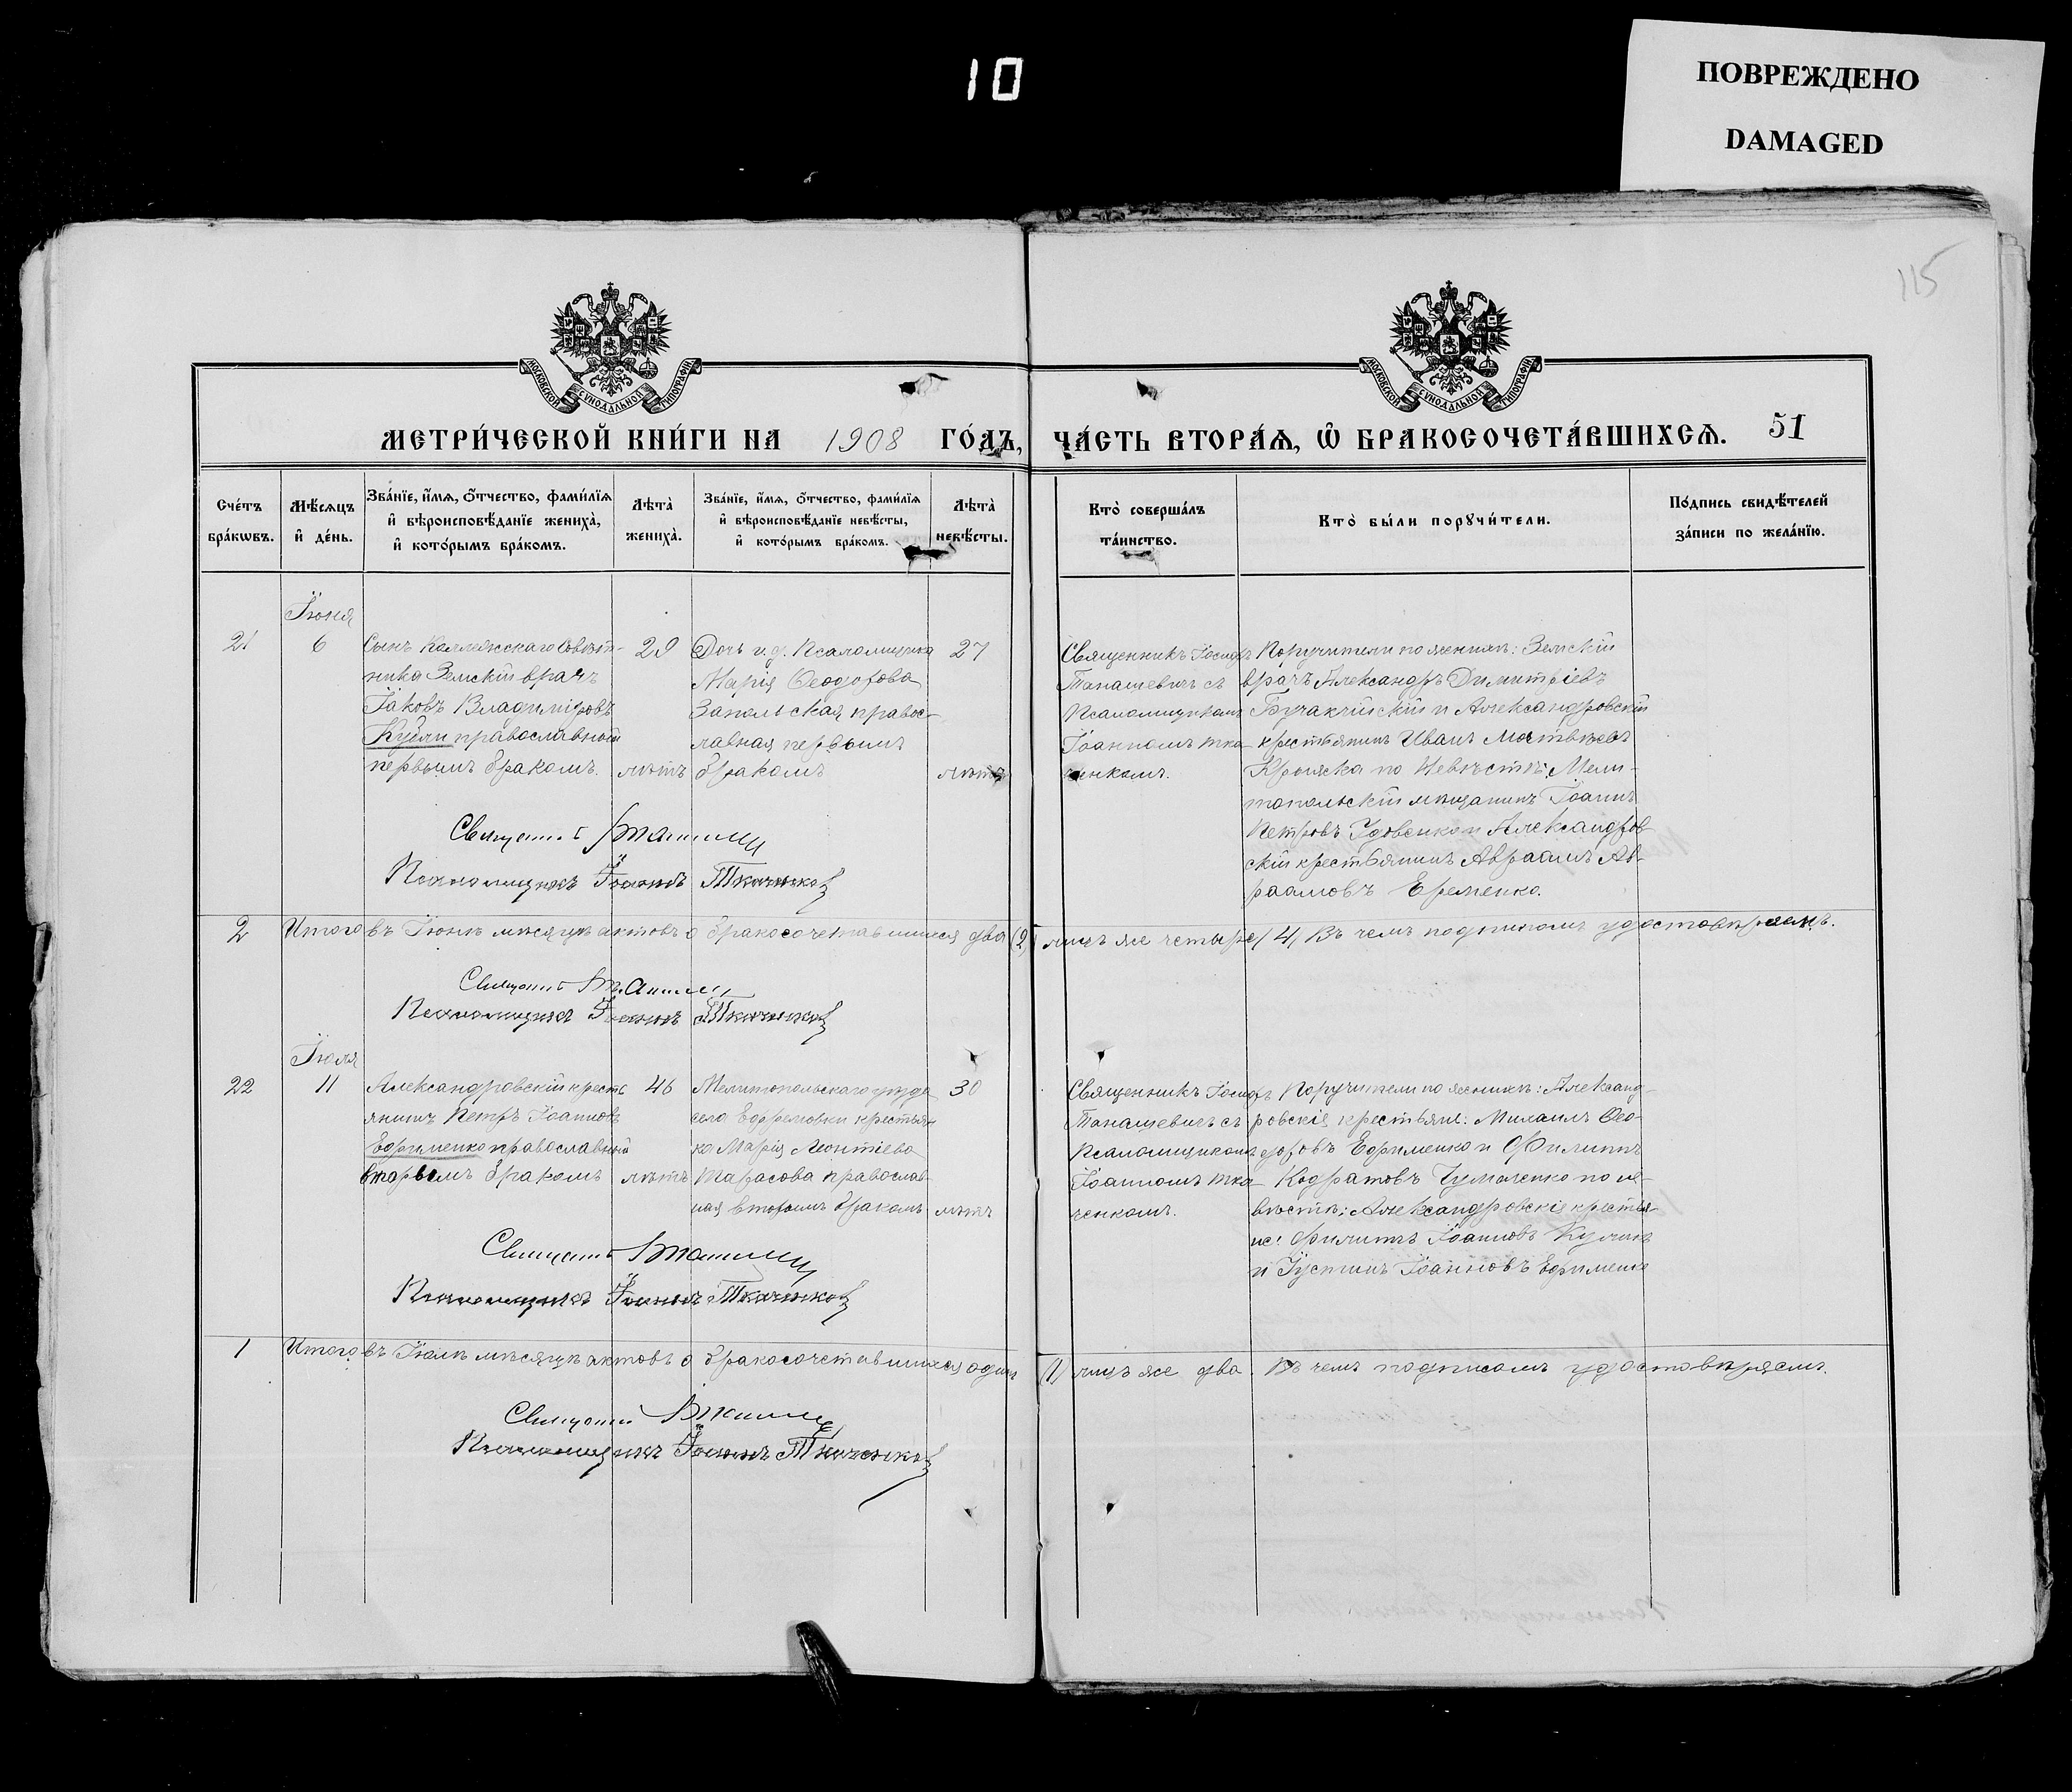 10
ПОВРЕЖДЕНО
DAMAGED
115
МОСКОВСКОЙ СѴНОДАЛЬНОЙ ТИПОГРАФІИ
МОСКОВСКОЙ СѴНОДАЛЬНОЙ ТИПОГРАФІИ
МЕТРИ́ЧЕСКОЙ КНИ́ГИ НА 1908 ГО́ДЪ, ЧА́СТЬ ВТОРА́Ѧ, Ѽ БРАКОСОЧЕТА́ВШИХСѦ. 51
Сче́тъ
бра́кѡвъ.
Мѣ́сѧцъ
и҆ де́нь.
Зва́нїе, и҆́мѧ, ѻ҆́тчество, фами́лїѧ
и҆ вѣроисповѣ́данїе жениха̀,
и҆ кото́рымъ бра́комъ.
Лѣ́та̀
жениха̀.
Зва́нїе, и҆́мѧ, ѻ҆́тчество, фами́лїѧ
и҆ вѣроисповѣ́данїе невѣ́сты,
и҆ кото́рымъ бра́комъ.
Лѣ́та̀
невѣ́сты.
Кто̀ соверша́лъ
та́инство.
Кто̀ бы́ли порꙋчи́тели.
По́дпись свидѣ́телей
за́писи по жела́нїю.
Іюня
21
6
Сынъ Коллежскаго Совѣт-
ника Земскій врачъ
Іаковъ Владиміровъ
православный
первымъ бракомъ.
29
лѣтъ
Дочь и. д. Псаломщика
Марія Ѳеодорова
Запольская правос-
лавная первымъ
бракомъ
27
лѣтъ
Священникъ Іосифъ
Танашевичъ съ
Псаломщикомъ
Іоанномъ Тка-
ченкомъ.
Поручители по женихѣ: Земскій
врачъ Александръ Димитріевъ
и Александровскій
крестьянинъ Иванъ Матвѣевъ
по Невѣстѣ: Мели-
топольскій мѣщанинъ Іоаннъ
Петровъ и Александров-
скій крестьянинъ Авраамъ Ав-
раамовъ Еременко.
Священникъ
Псаломщикъ Іоаннъ Ткаченко
2
Итого въ Іюнѣ мѣсяцѣ актовъ о бракосочетавшихся два (2) лицъ же четыре (4) Въ чемъ подписомъ удостовѣряемъ.
Священникъ
Псаломщикъ Іоаннъ Ткаченко
Іюля
22
11
Александровскій кресть
янинъ Петръ Іоанновъ
Ефрименко православный
вторымъ бракомъ
46
лѣтъ
Мелитопольскаго уѣзда
села Ефремовки крестьян
ка Марія Леонтіева
Тарасова православ-
ная вторымъ бракомъ
30
лѣтъ
Священникъ Іосифъ
Танашевичъ съ
Псаломщикомъ
Іоанномъ Тка-
ченкомъ.
Поручители по женихѣ: Александ-
ровскія крестьяне: Михаилъ Ѳео-
доровъ Ефрименко и Филиппъ
Кодратовъ по не-
вѣстѣ: Александровскіе крестья-
не: Филиппъ Іоанновъ
и Іустинъ Іоанновъ Ефрименко
Священникъ
Псаломщикъ Іоаннъ Ткаченко
1
Итого въ Іюлѣ мѣсяцѣ актовъ о бракосочетавшихся одинъ (1) лицъ же два. Въ чемъ подписомъ удостовѣряемъ.
Священникъ
Псаломщикъ Іоаннъ Ткаченко